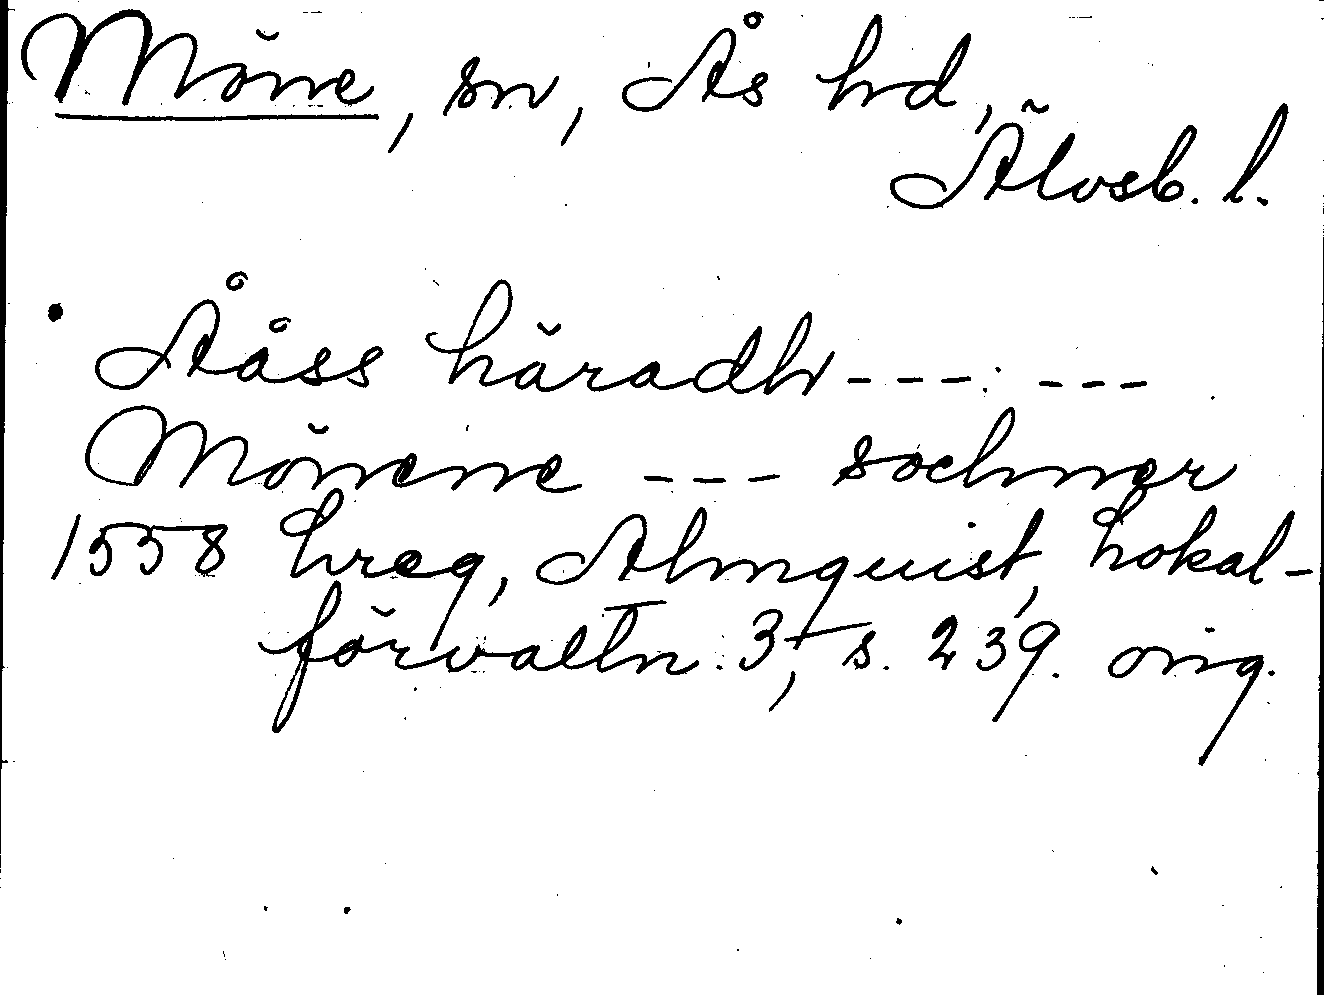 Möne, sn, Ås hd,
Älvsb. l.
Ååss häradh --- : ---
Mönene --- sochner
1558 hreg, Almquist, Lokal-
förvaltn. 3, s. 239. orig.